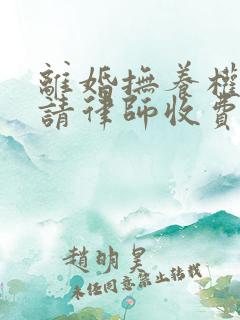 離婚撫養權
請律師收費
趙明昊
未任同意禁止轉載